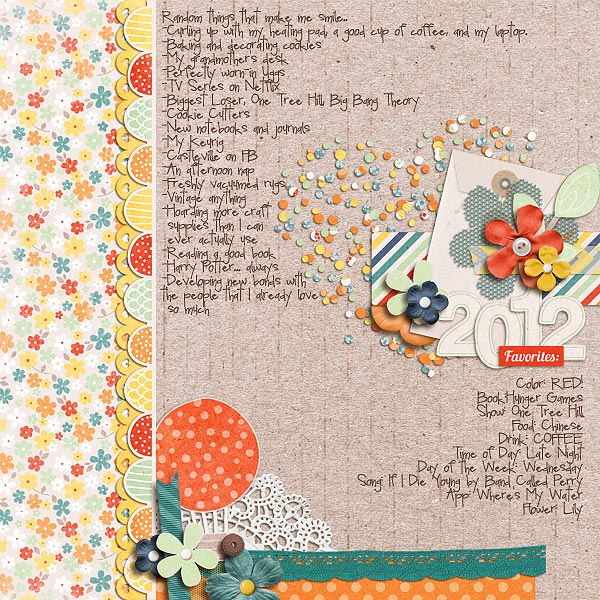 Random things that make me smile...
Curling up with my heating pad, a good cup of coffee, and my laptop.
Baking and decorating cookies
My grandmothers desk
Perfectly worn-in Uggs
TV Series on Netflix
Biggest Loser, One Tree Hill, Big Bang Theory
Cookie Cutters
New notebooks and journals
My Keurig
Castleville on FB
An afternoon nap
Freshly vacuumed rugs
Vintage anything
Hoarding more craft
supplies than I can
ever actually use
Reading a good book
Harry Potter... always
Developing new bonds with
the people that I already love
so much
2012
Favorites:
Color: RED!
Book:Hunger Games
Show: One Tree Hill
Food: Chinese
Drink: COFFEE
Time of Day: Late Night
Day of the Week: Wednesday
Song: If I Die Young by Band Called Perry
App: Where's My Water
Flower: Lily